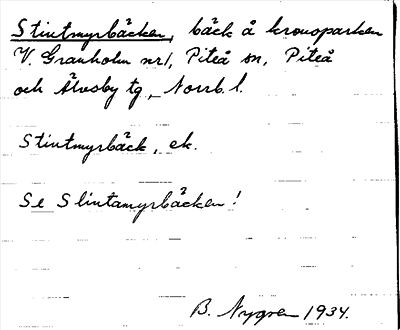 Stintmyrbäcken, bäck å kronoparken
V. Granholm nr1, Piteå sn, Piteå
och Älvsby tg, Norrb. l.
Stintmyrbäck, ek.
Se Slintamyrbäcken!
B. Nygren 1934.